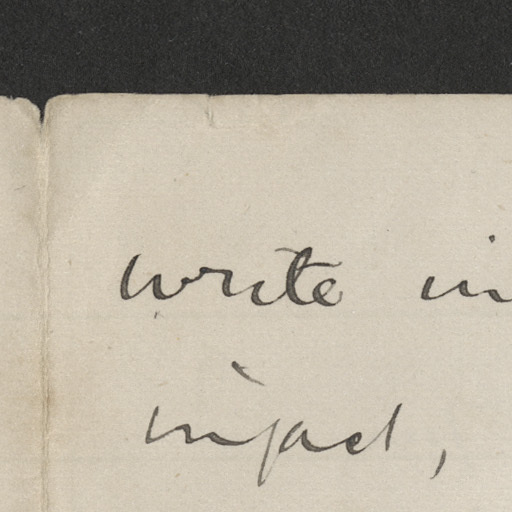 write in
in fact,